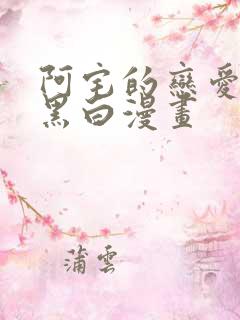 阿宅的戀愛
黑白漫畫
蒲雲